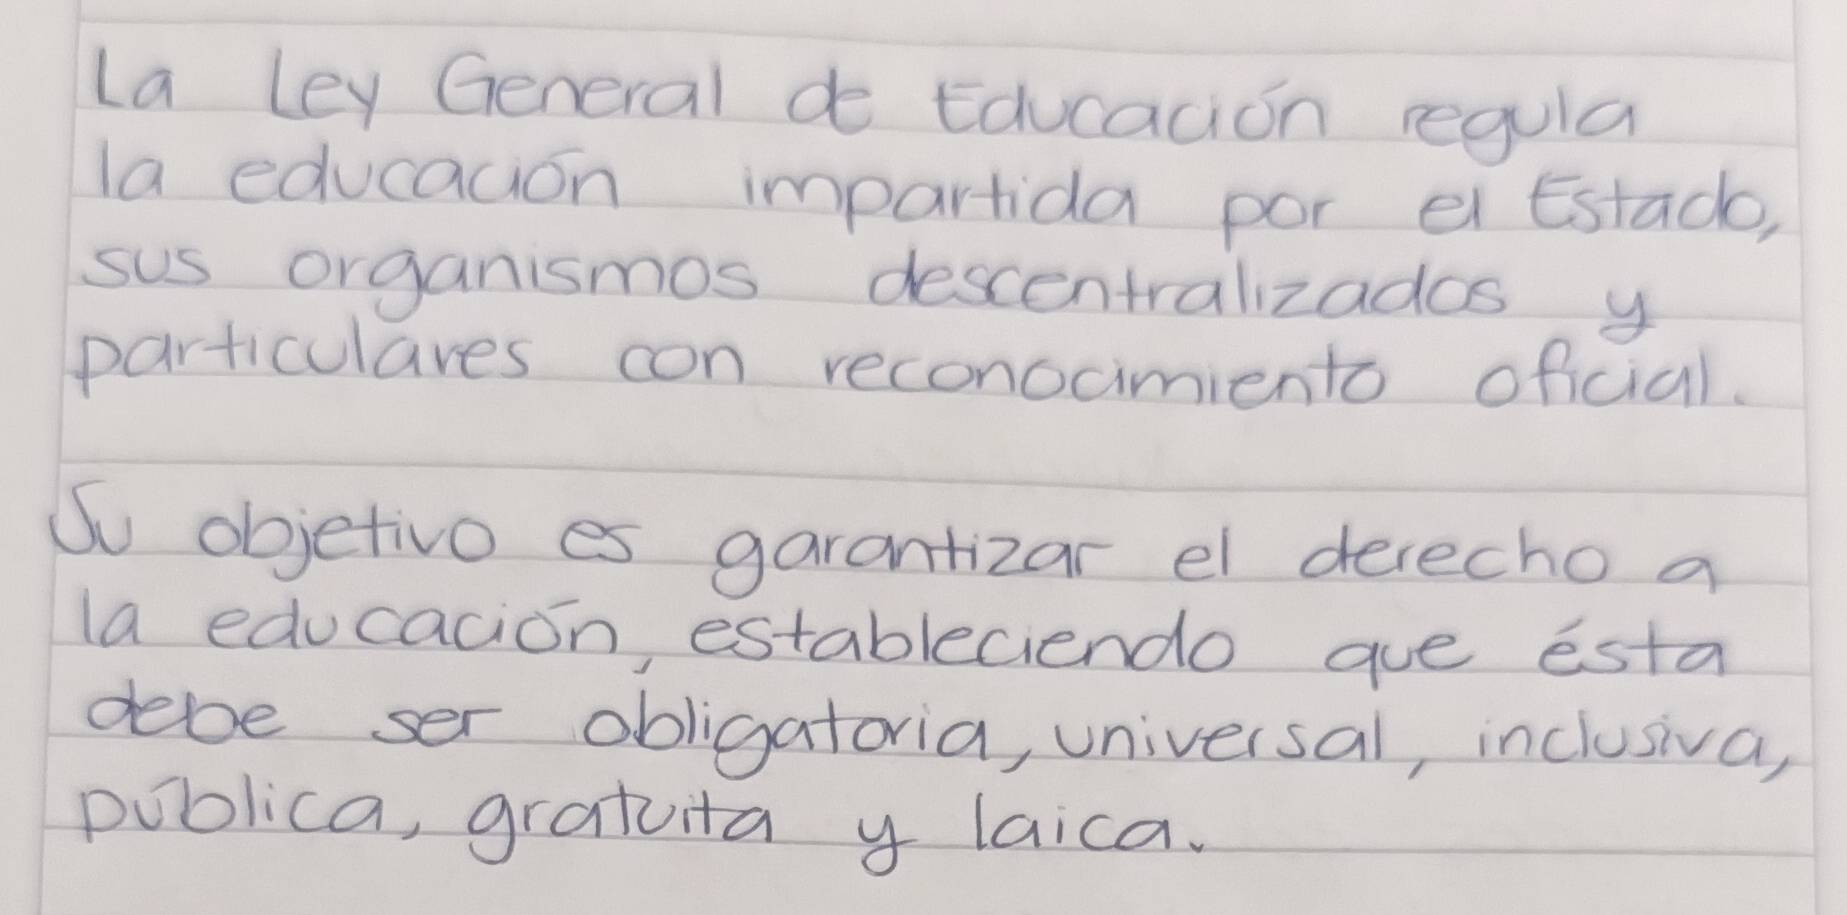 La Ley General de Educación regula
la educación impartida por el Estado,
sus organismos descentralizados y
particulares con reconocimiento oficial.
Su objetivo es garantizar el derecho a
la educación, estableciendo que ésta
debe ser obligatoria, universal, inclusiva,
pública, gratuita y laica.